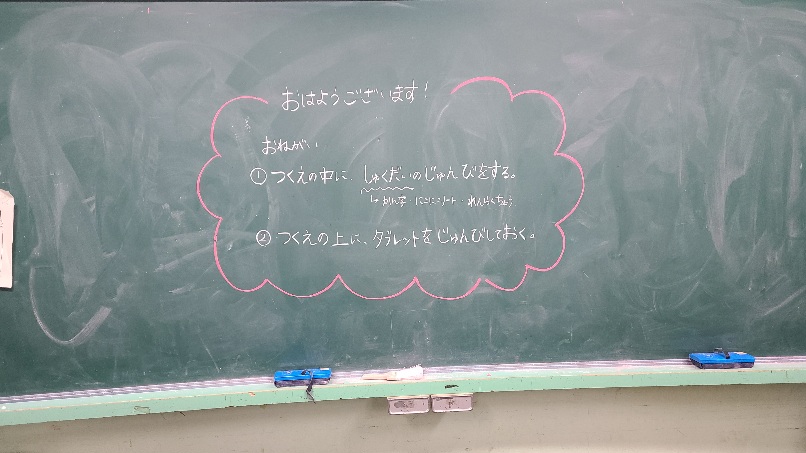 おはようございます!
おねがい
① つくえの中に、しゅくだいのじゅんびをする。
↳ かん字・にこにこノート・れんらくちょう
② つくえの上に、タブレットをじゅんびしておく。